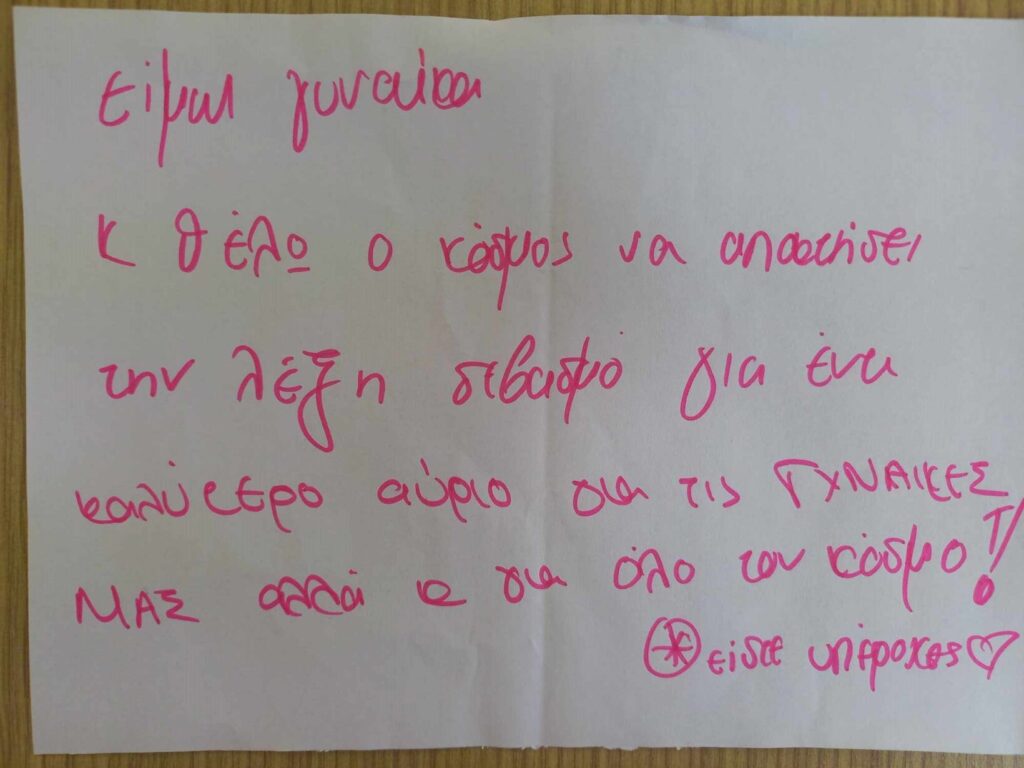 είμαι γυναίκα
κ θέλω ο κόσμος να αποκτήσει
την λέξη σεβασμό για ένα
καλύτερο αύριο για τις ΓΥΝΑΙΚΕΣ
ΜΑΣ αλλά κ για όλο τον κόσμο!
* είστε υπέροχες♡